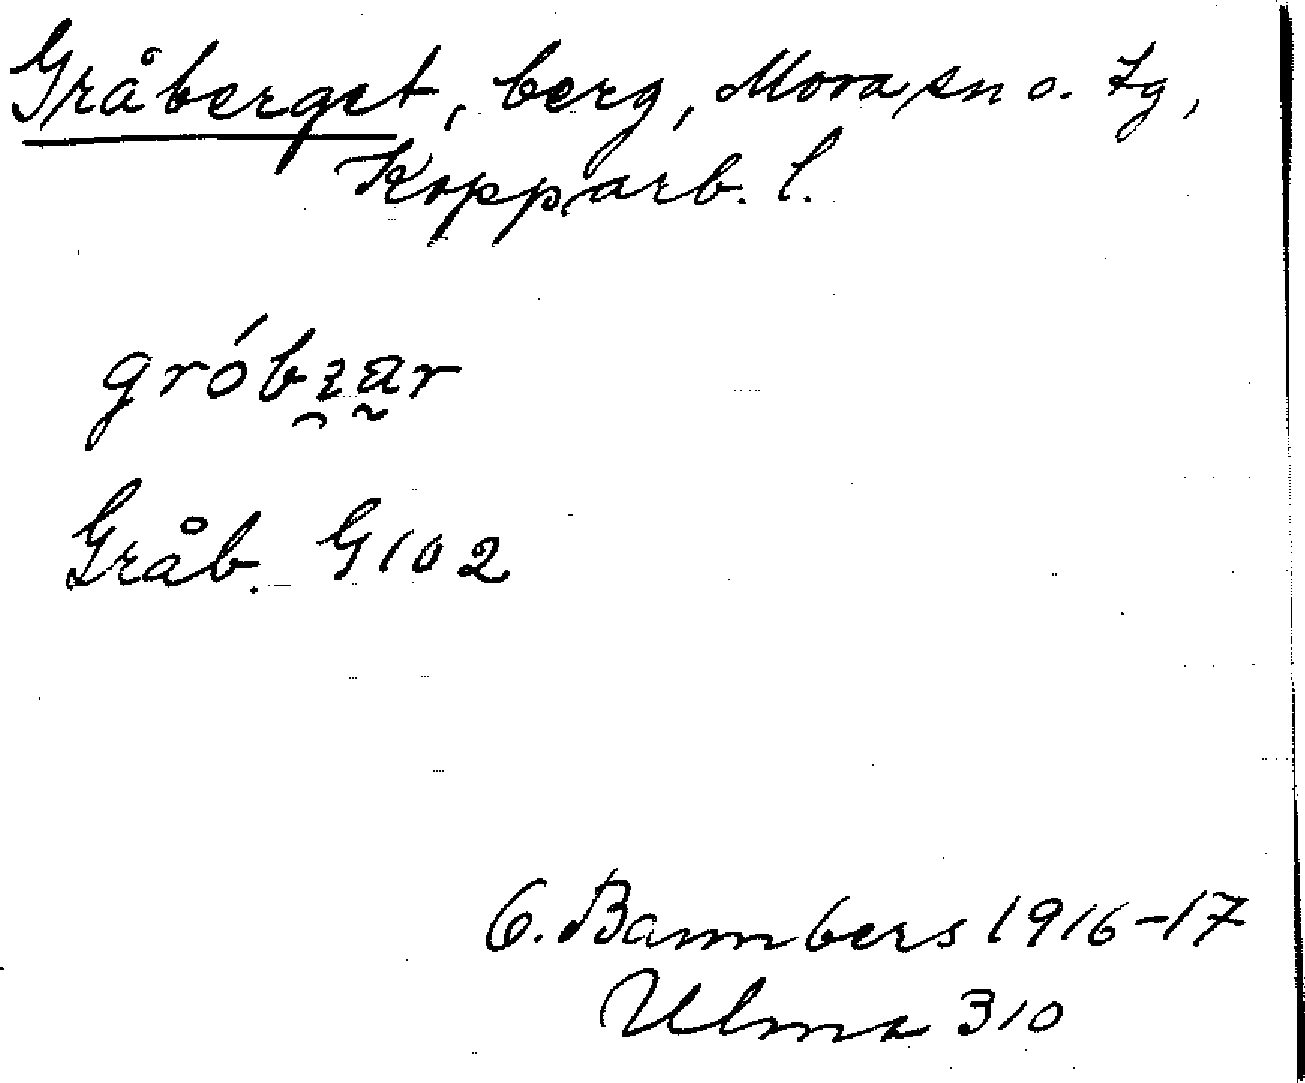 Gråberget, berg, Mora sn o. tg,
Kopparb. l.
gróbzar
Gråb. G102
O. Bannbers 1916-17
Ulma 310